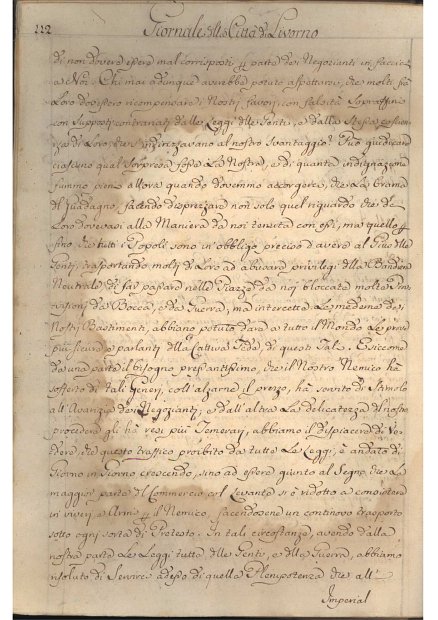 112 Giornale della Città di Livorno
di non dovere essere mal corrisposti per parte dei Negozianti in faccia
a Noi. Chi mai adunque averebbe potuto aspettarsi, che molti fra
Loro dovessero ricompensare i Nostri favori con falsità Sopraffine
con Supposti contrariati dalle Leggi delle Genti, e dalla Stessa
di Loro, che s'indirizzavano al nostro Svantaggio? Può giudicare
ciascuno qual Sorpresa fosse La Nostra, e di quanta indignazione
fummo pieni allora quando dovemmo accorgerci, che La brama
del Guadagno, facendo disprezzare non solo quel riguardo che a
Loro dovevasi alla Maniera da noi tenuta con essi, ma quello
sino che tutti i Popoli sono in obbligo preciso d'avere al Gius delle
Genti, trasportando molti di Loro ad abusare i privilegi della Bandiera
Neutrale di far passare nelle Piazze da noi bloccate molte Prov
visioni da Bocca, e da Guerra, ma intercettate Le medeme dei
Nostri Bastimenti, abbiano potuto dare a tutto il Mondo Le prove
più sicure e parlanti della Cattiva Fede di questi Tali. E siccome
da una parte il bisogno pressantissimo, che il Nostro Nemico ha
sofferto di tali Generi, coll'alzarne il prezzo, ha servito di Stimolo
all'Avarizia dei Negozianti, e dall'altra La delicatezza del nostro
procedere gli ha resi più Temerari, abbiamo il dispiacere di Ve
dere che questo traffico proibito da tutte Le Leggi, è andato di
Giorno in Giorno crescendo, sino ad essere giunto al Segno, che La
maggior parte del Commercio col Levante si è ridotto a consistere
in viveri e Armi per il Nemico, facendosene un continovo trasporto
sotto ogni sorta di Pretesto. In tali circostanze, avendo dalla
nostra parte Le Leggi tutte delle Genti, e della Guerra, abbiamo
risoluto di Servirci adesso di quella Plenipotenza che all'
Imperial